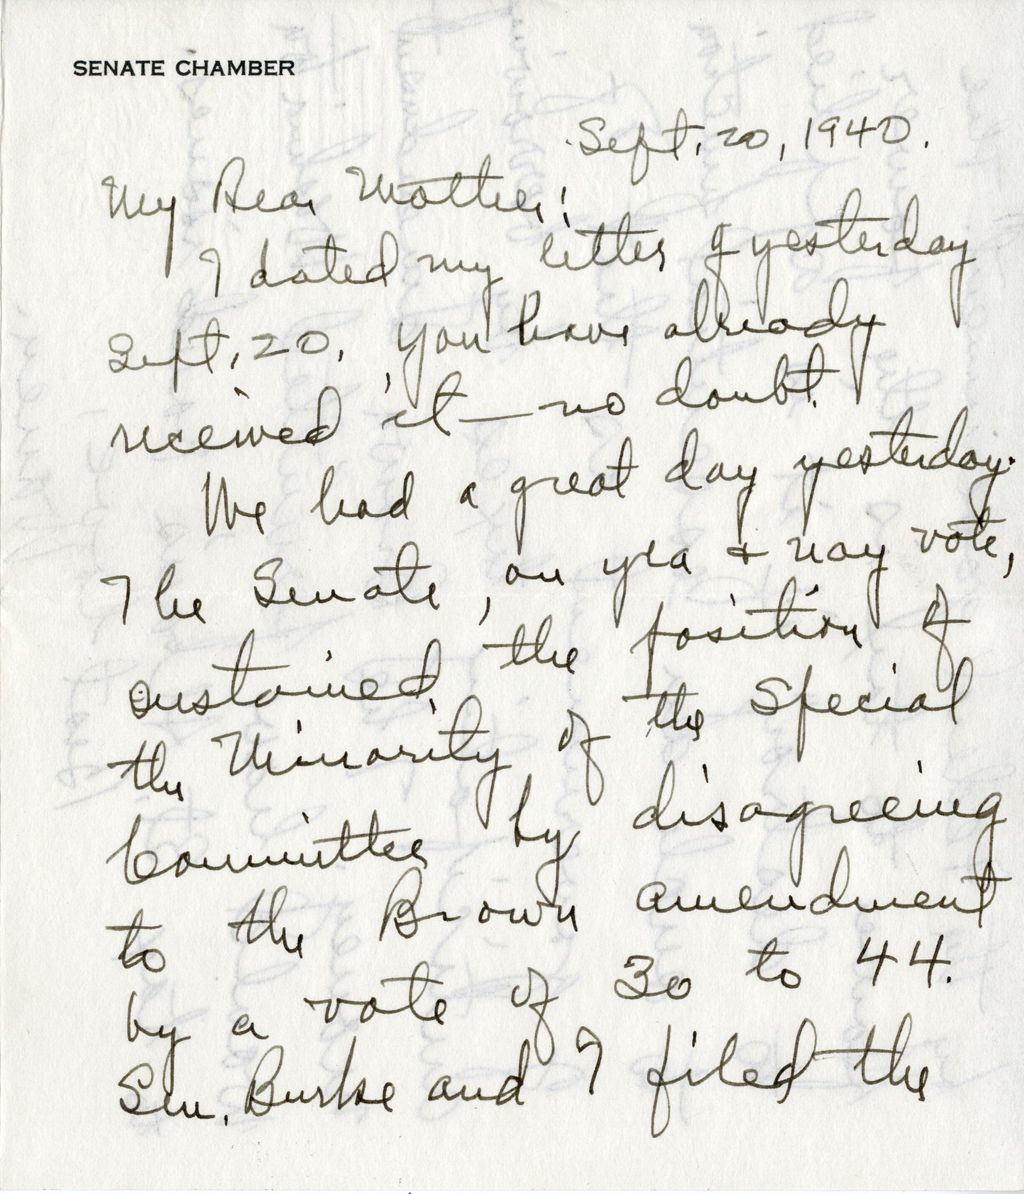 SENATE CHAMBER
Sept. 20, 1940.
My Dear Mother:
I dated my letter of yesterday
Sept. 20. You have already
received it — no doubt.
We had a great day yesterday.
The Senate, on yea + nay vote,
sustained the position of
the Minority of the Special
Committee by disagreeing
to the Brown amendment
by a vote of 30 to 44.
Sen. Burke and I filed the